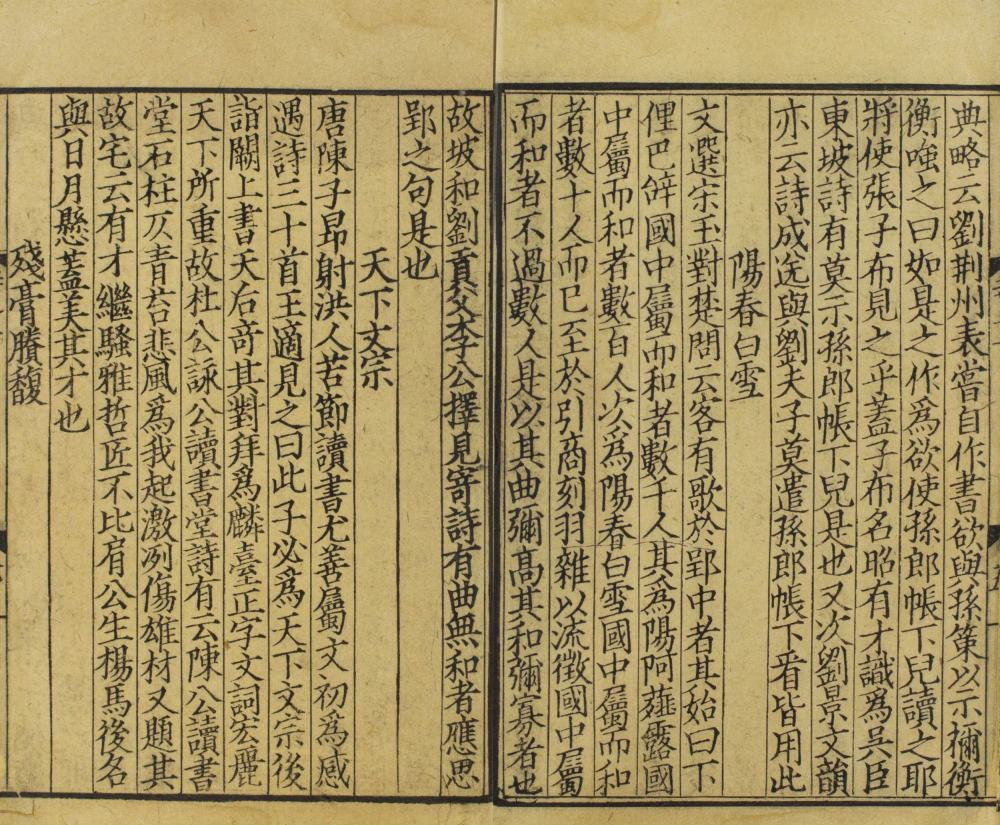 典略云劉荆州表嘗自作書欲與孫策以示禰衡
衡嗤之曰如是之作爲欲使孫郎帳下兒讀之耶
將使張子布見之乎蓋子布名昭有才識爲吳臣
東坡詩有莫示孫郎帳下兒是也又次劉景文韻
亦云詩成送與劉夫子莫遣孫郎帳下看皆用此
陽春白雪
文選宋玉對楚問云客有歌於郢中者其始曰下
俚巴人國中屬而和者數千人其爲陽阿薤露國
中屬而和者數百人次爲陽春白雪國中屬而和
者數十人而已至於引商刻羽雜以流徵國中屬
而和者不過數人是以其曲彌髙其和彌寡者也
故坡和劉貢父李公擇見寄詩有曲無和者應思
郢之句是也
天下文宗
唐陳子昂射洪人苦節讀書尤善屬文初爲感
遇詩三十首王適見之曰此子必爲天下文宗後
詣闕上書天后竒其對拜爲麟臺正字文詞宏麗
天下所重故杜公詠公讀書堂詩有云陳公讀書
堂石柱仄青苔悲風爲我起激冽傷雄材又題其
故宅云有才繼騷雅哲匠不比肩公生楊馬後名
與日月懸蓋美其才也
殘膏賸馥